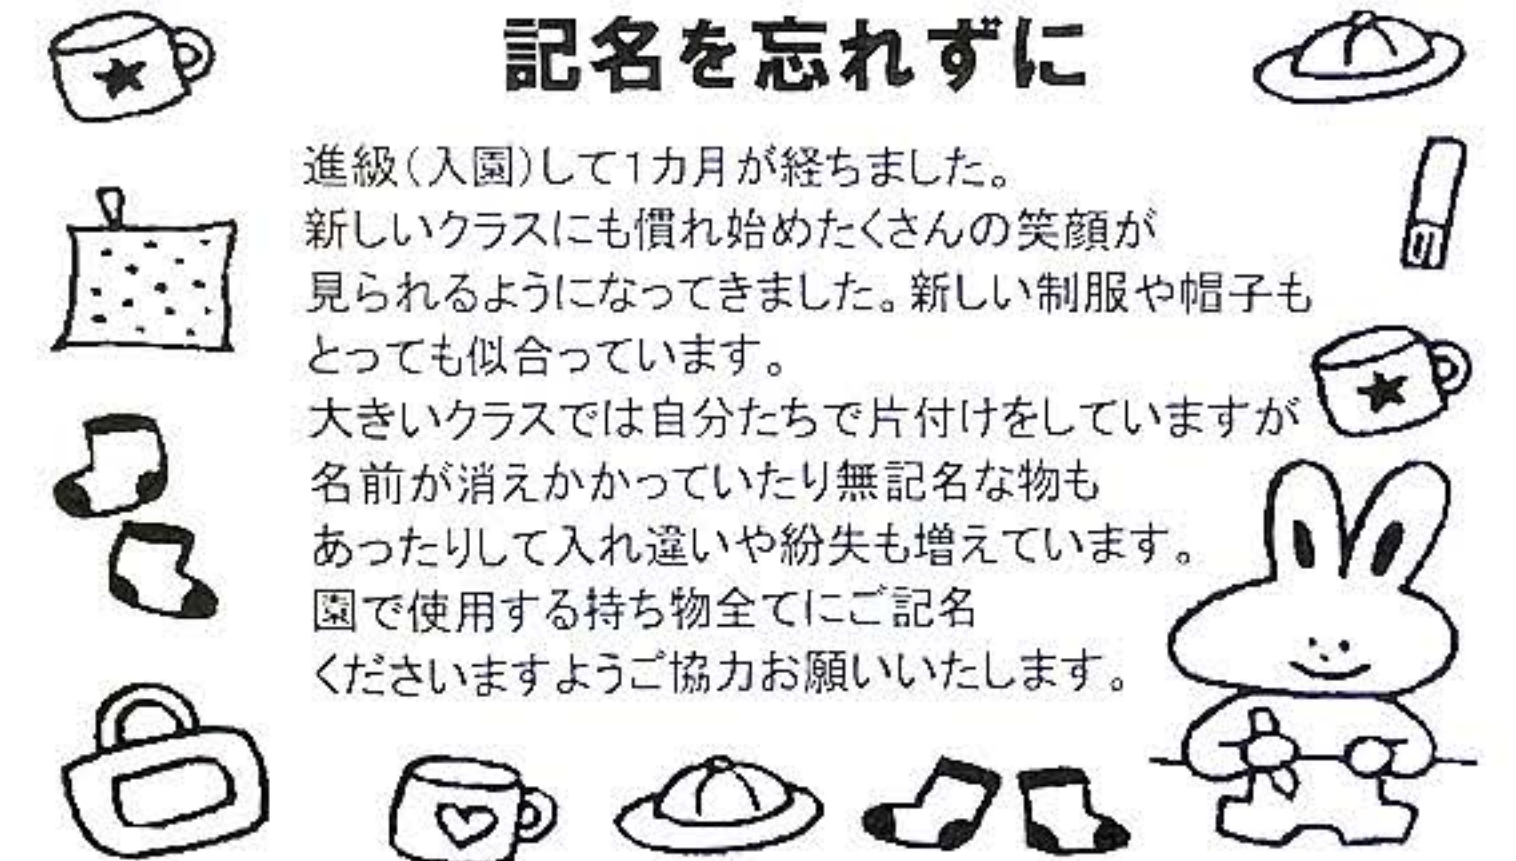 記名を忘れずに
進級(入園)して1カ月が経ちました。
新しいクラスにも慣れ始めたくさんの笑顔が
見られるようになってきました。新しい制服や帽子も
とっても似合っています。
大きいクラスでは自分たちで片付けをしていますが
名前が消えかかっていたり無記名な物も
あったりして入れ違いや紛失も増えています。
園で使用する持ち物全てにご記名
くださいますようご協力お願いいたします。